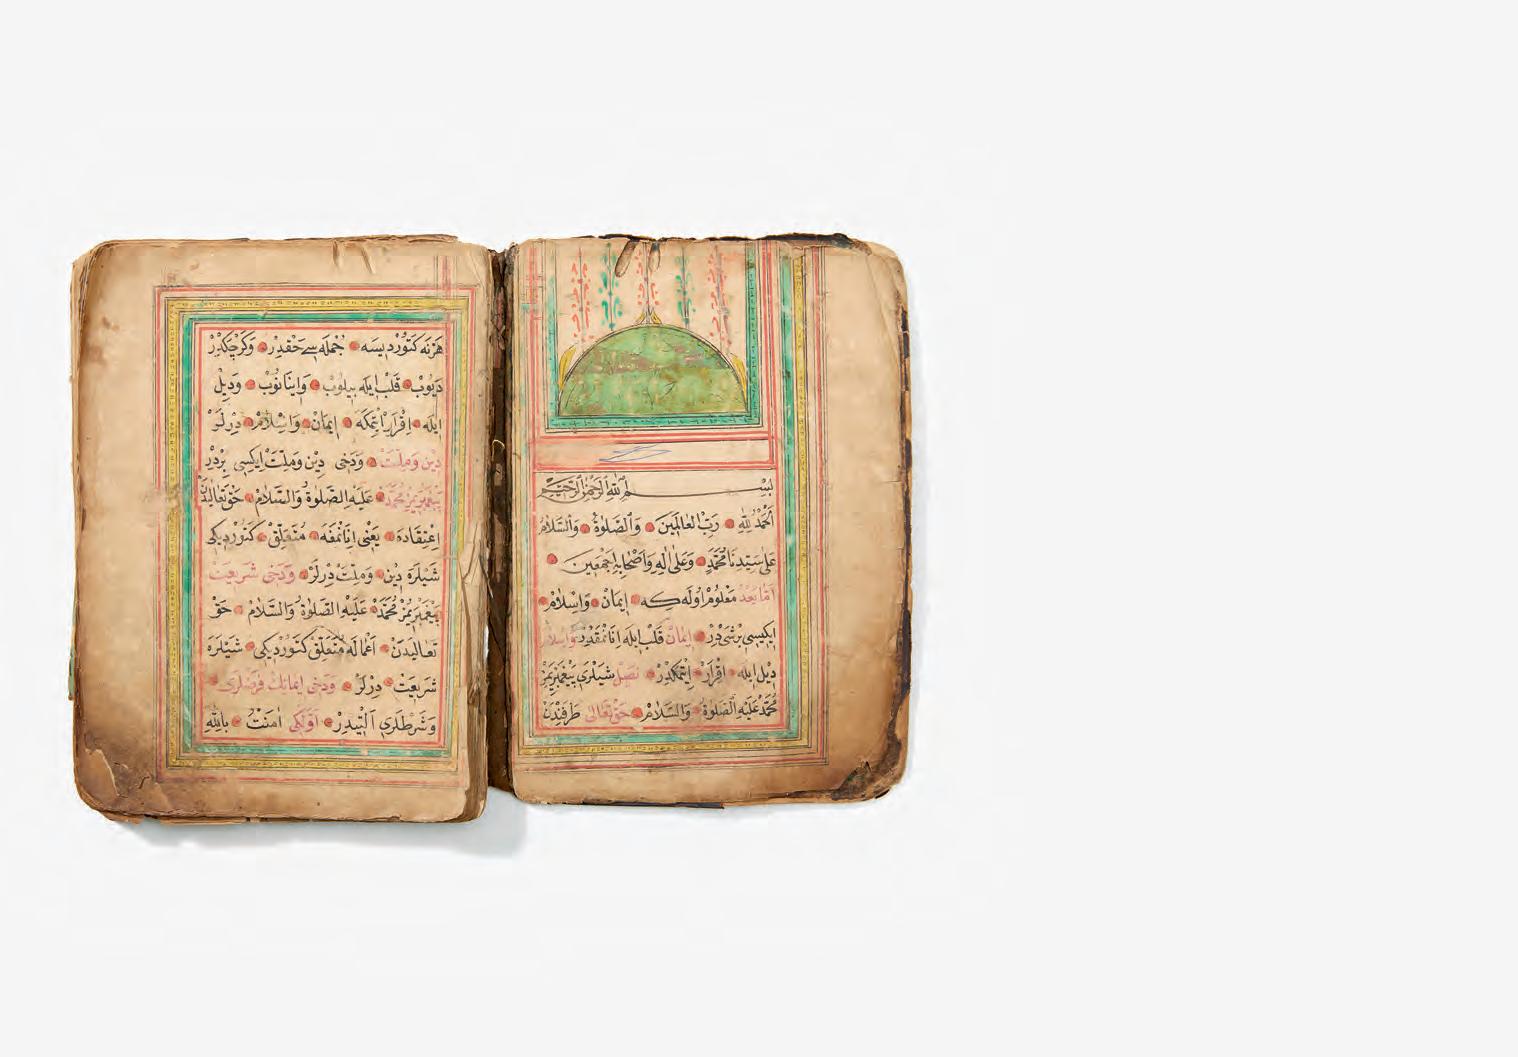 بسم الله الرحمن الرحيم
اَلْحَمْدُ لِلّٰهِ رَبِّ الْعَالَمِينَ وَالصَّلٰوةُ وَالسَّلَامُ
عَلٰى سَيِّدِنَا مُحَمَّدٍ وَعَلٰى اٰلِهِ وَاَصْحَابِهِ اَجْمَعِينَ
اَمَّا بَعْدُ مَعْلُومْ اُولَه كِه اِيمَانْ وَاِسْلَامْ
ايكِيسِى بِرْشَىْ دِرْ اِيمَانْ قَلْبْ ايلَه اِنَانْمَقْدِرْ وَاِسْلَامْ
دِيلْ ايلَه اِقْرَارْ اِيتْمَكْدِرْ شِيلَرِى پَيْغَمْبَرِيمِزْ
مُحَمَّدْ عَلَيْهِ الصَّلٰوةُ وَالسَّلَامْ حَقْ تَعَالٰى طَرَفِنْدَنْ
هَرْنَه كَتُورْدِيسَه جُمْلَه سِى حَقْدِرْ وَكَرْچَكْدِرْ
دِيُوبْ قَلْبْ ايلَه بِيلُوبْ وَاِينَانُوبْ وَدِيلْ
ايلَه اِقْرَارْ اِتْمَكَه اِيمَانْ وَاِسْلَامْ دِرْلَرْ
دِينْ وَمِلَّتْ وَدَخِى دِينْ وَمِلَّتْ ايكِيسِى بِرْدِرْ
پَيْغَمْبَرِيمِزْ مُحَمَّدْ عَلَيْهِ الصَّلٰوةُ وَالسَّلَامْ حَقْ تَعَالِيدَنْ
اِعْتِقَادَه يَعْنِى اِنَانْمَغَه مُتَعَلِّقْ كَتُورْدِيكِى
شَيْلَرَه دِينْ وَمِلَّتْ دِرْلَرْ وَدَخِى شَرِيعَتْ
پَيْغَمْبَرِيمِزْ مُحَمَّدْ عَلَيْهِ الصَّلٰوةُ وَالسَّلَامْ حَقْ
تَعَالِيدَنْ اَعْمَالَه مُتَعَلِّقْ كَتُورْدِيكِى شَيْلَرَه
شَرِيعَتْ دِرْلَرْ وَدَخِى اِيمَانِكْ فَرْضْلَرِى
وَشَرْطْلَرِى اَلْتِيدِرْ اَوَّلْكِى اٰمَنْتُ بِاللّٰهِ